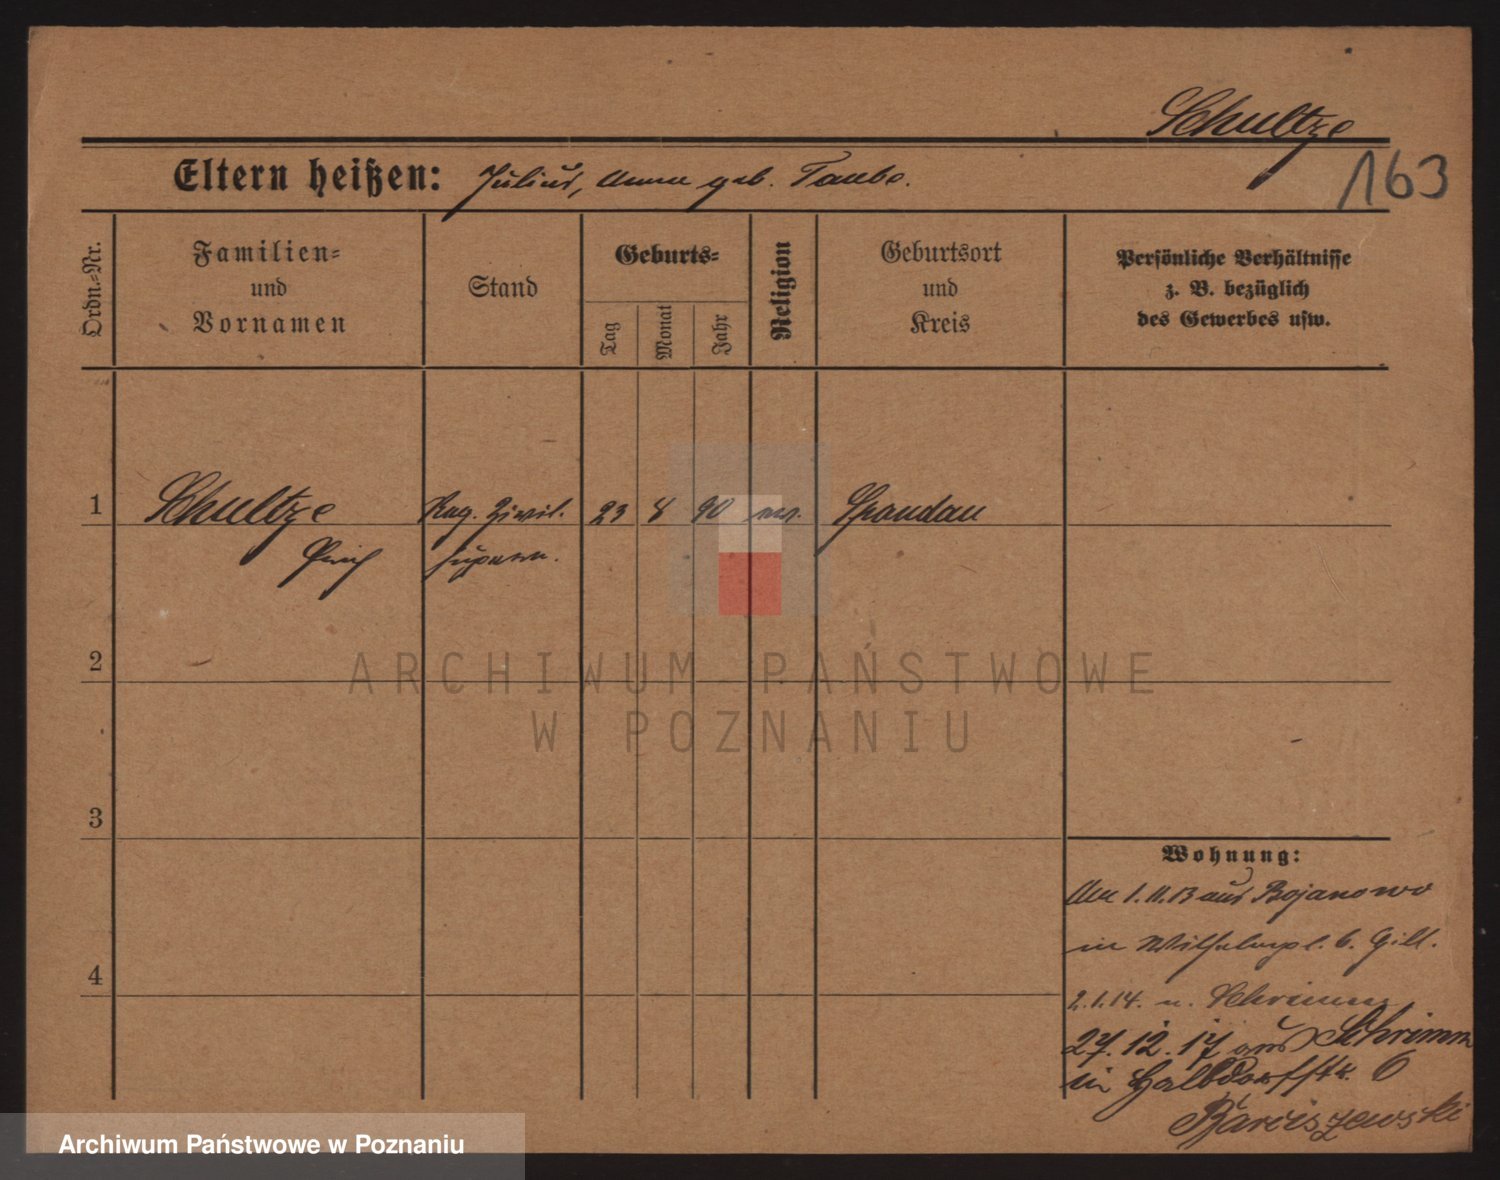 Schultze
163
Eltern heißen: Julius, Anna geb. Taube.
Ordn.=Nr.
Familien=
und
Vornamen
Stand
Geburts=
Tag
Monat
Jahr
Religion
Geburtsort
und
Kreis
Persönliche Verhältnisse
z. B. bezüglich
des Gewerbes usw.
1 Schultze Reg. Zivil. 23 8 90 ev. Spandau
Erich supern.
2
3
4
Wohnung:
Am 1.11.13 aus Bojanowo
in Wilhelmspl. 6. Gill.
2.1.14. n. Schrimm
27.12.17 aus Schrimm
in Halbdorfstr. 6
Barciszewski
ARCHIWUM PAŃSTWOWE
W POZNANIU
Archiwum Państwowe w Poznaniu